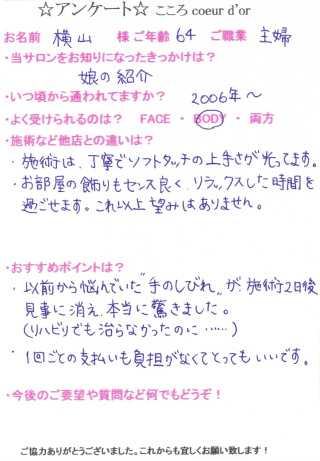 ☆アンケート☆ こころ coeur d'or
お名前 横山 様 ご年齢 64 ご職業 主婦
・当サロンをお知りになったきっかけは？
娘の紹介
・いつ頃から通われてますか？ 2006年〜
・よく受けられるのは？ FACE ・ BODY ・ 両方
・施術など他店との違いは？
・施術は、丁寧でソフトタッチの上手さが光ってます。
・お部屋の飾りもセンス良く、リラックスした時間を
過ごせます。これ以上望みはありません。
・おすすめポイントは？
・以前から悩んでいた"手のしびれ"が、施術2日後
見事に消え、本当に驚きました。
(リハビリでも治らなかったのに……)
・1回ごとの支払いも負担がなくてとってもいいです。
・今後のご要望や質問など何でもどうぞ！
ご協力ありがとうございました。これからも宜しくお願い致します！